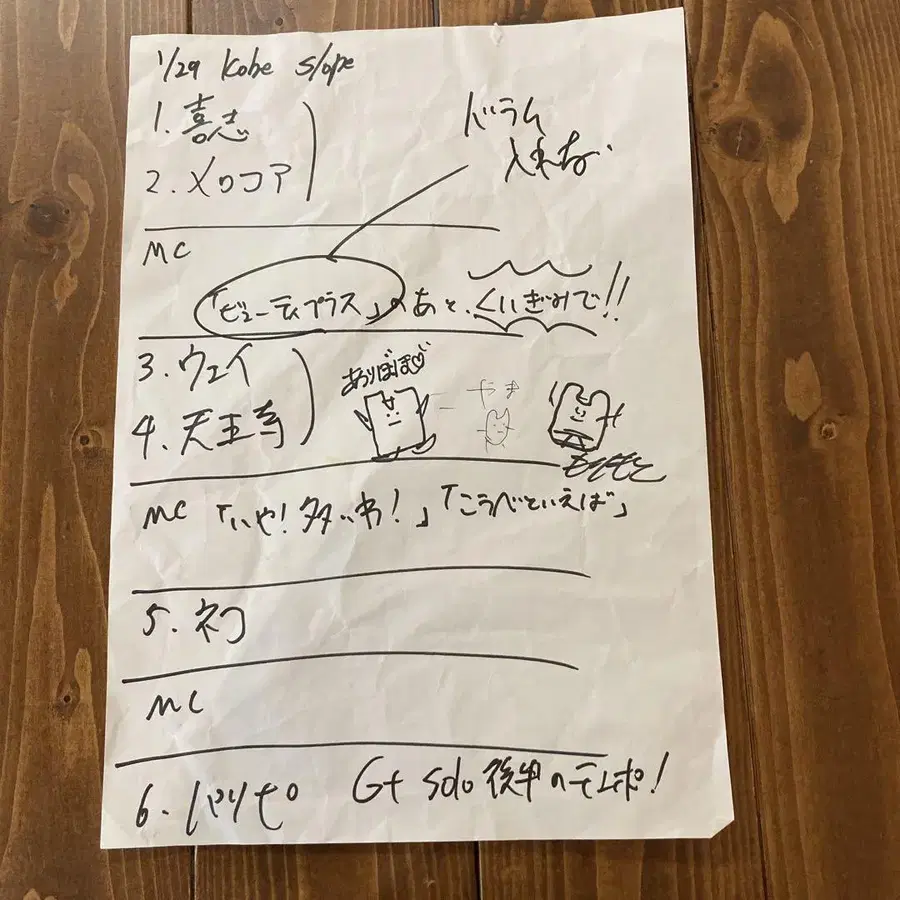 1/29 Kobe Slope
1. 喜志
2. メロコア
ドラム
入れない
MC
「ビューティプラス」のあと、くいぎみで!!
3. ウェイ
4. 天王寺
ありぼぼ♡
やま
もじもじ
MC 「いや!多いわ!」「こうべといえば」
5. ネコ
MC
6. パリピ Gt solo 後半のテンポ!